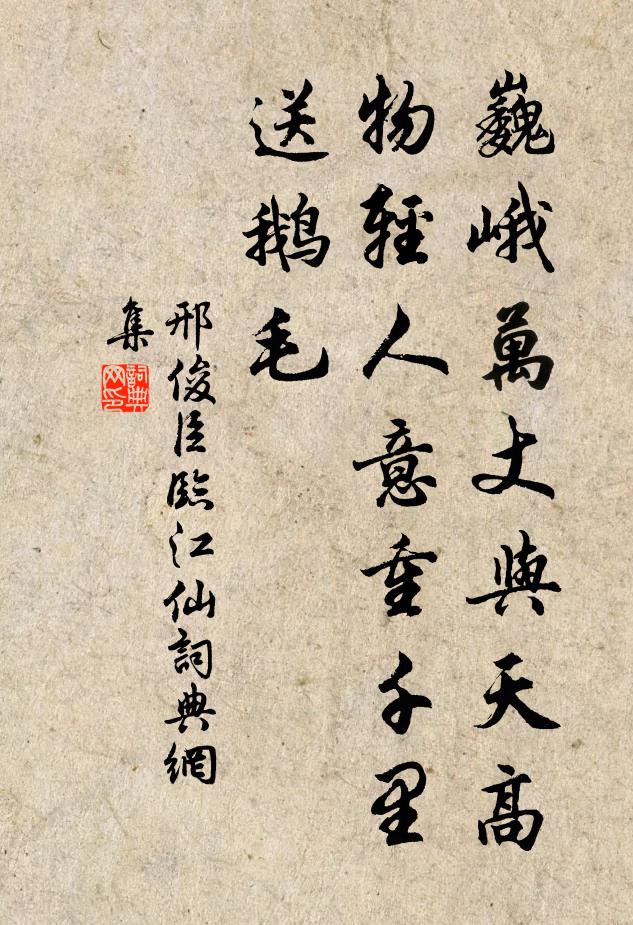 巍峨萬丈與天高
物輕人意重千里
送鵝毛
邢俊臣臨江仙詞典網
集
詞典
网印